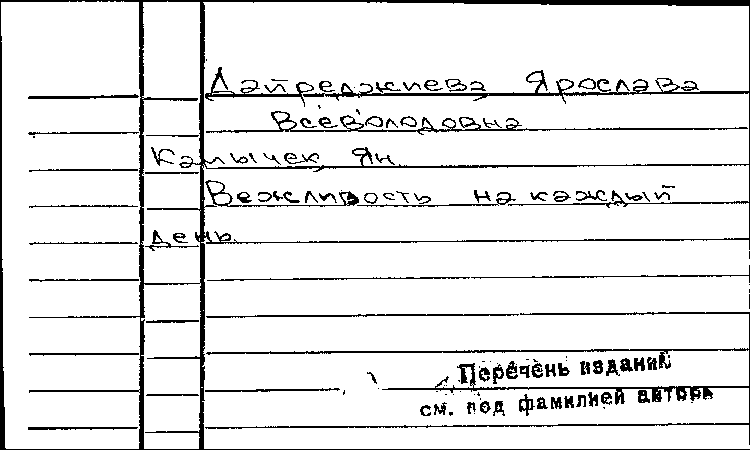 Дайреджиева Ярослава
Всеволодовна
Камычек, Ян
Вежливость на каждый
день.
Перечень изданий
см. под фамилией автора